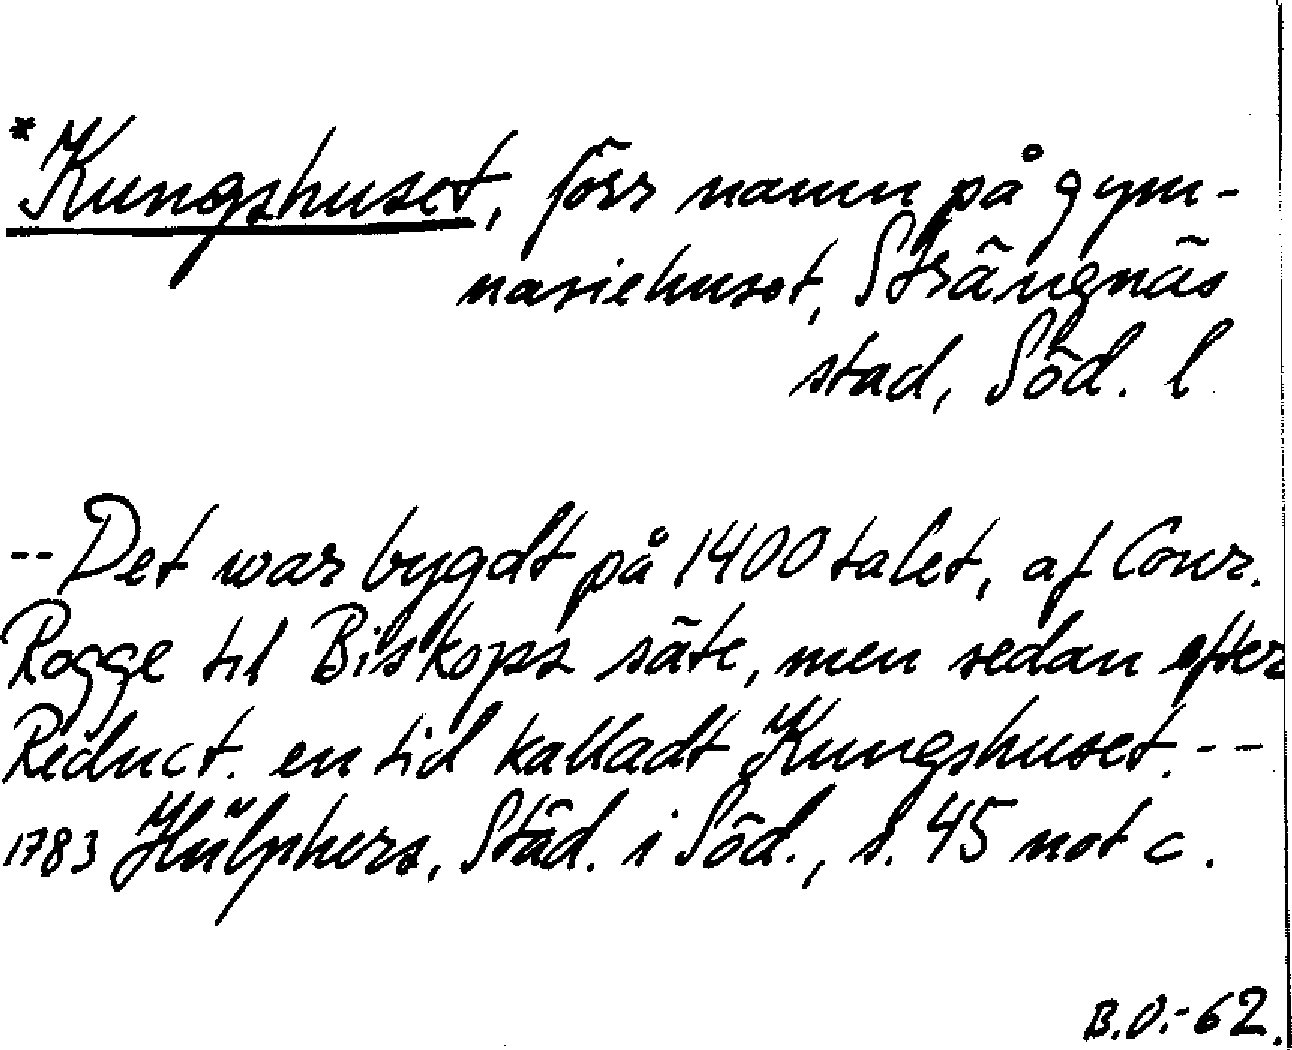 *Kungshuset, förr namn på gym-
nasiehuset, Strängnäs
stad, Söd. l.
-- Det war bygdt på 1400 talet, af Conr.
Rogge til Biskops säte, men sedan efter
Reduct. en tid kalladt Kungshuset. --
1783 Hülphers, Städ. i Söd., s. 45 not c.
B.O.-62.